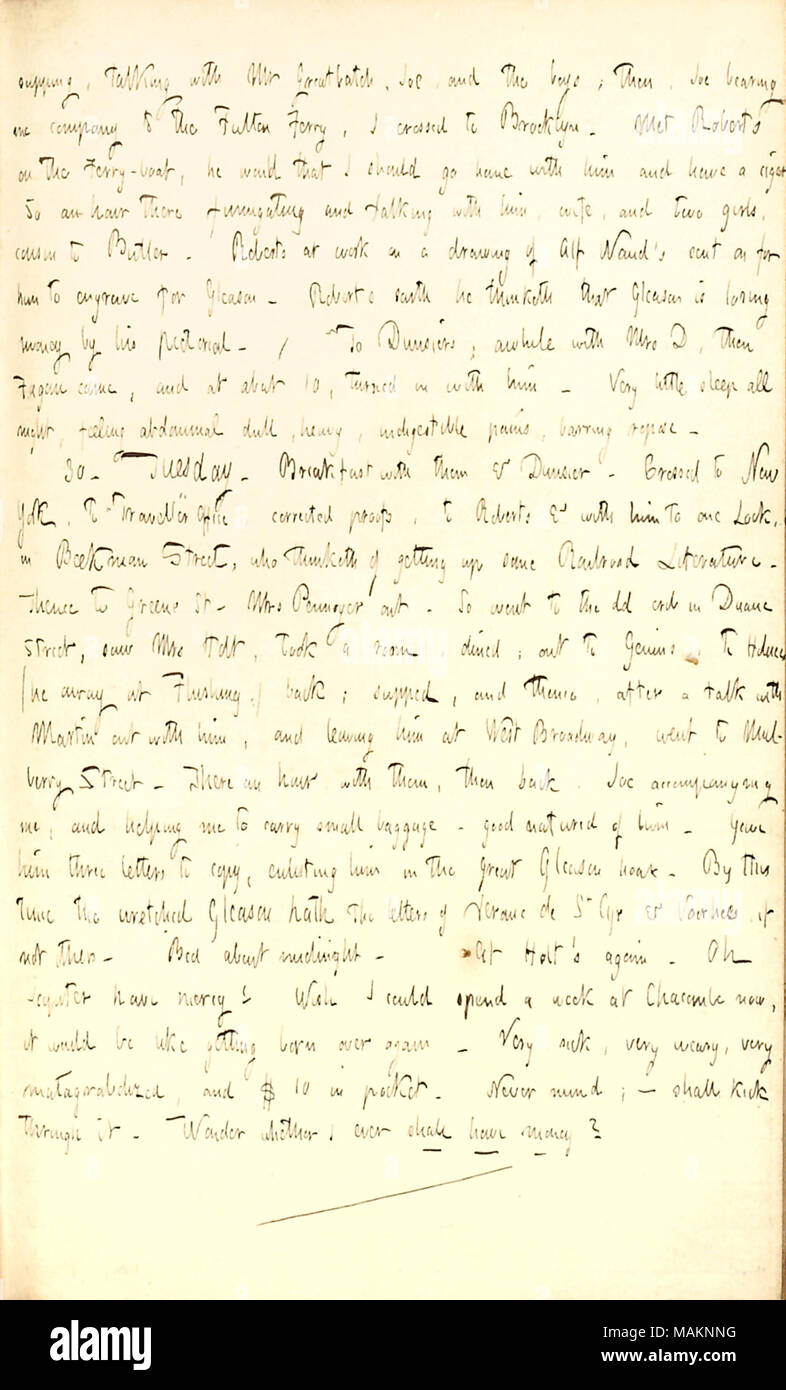 supping, talking with Mr Greatbatch, Joe, and the boys; then, Joe bearing
me company to the Fulton Ferry, I crossed to Brooklyn. Met Roberts
on the Ferry-boat, he would that I should go home with him and have a cigar
So an hour there fumigating and talking with him, wife, and two girls,
cousin to Butler. Roberts at work on a drawing of Alf Waud's sent on for
him to engrave for Gleason. Roberts saith he thinketh that Gleason is losing
money by his pictorial. / To Dunsiers; awhile with Mrs D, then
Fagan came, and at about 10, turned in with him. Very little sleep all
night, feeling abdominal dull, heavy, indigestible pains, barring repose.
30. Tuesday. Breakfast with them & Dunsier. Crossed to New
York, To "Traveller" Office corrected proofs, to Roberts & with him to one Lock,
in Beekman Street, who thinketh of getting up some Railroad Literature.
Thence to Greene St. Mrs Pennoyer out. So went to the old crib in Duane
Street, saw Mrs Holt, took a room, dined; out to Genins, to Holmes
(he away at Flushing,) back; supped, and thence, after a talk with
Martin out with him, and leaving him at West Broadway, went to Mul-
berry Street. There an hour with them, then back, Joe accompanying
me, and helping me to carry small baggage. good natured of him. Gave
him three letters to copy, enlisting him in the great Gleason hoax. By this
time the wretched Gleason hath the letters of de St Cyr & Voorhees, if
not others. Bed about midnight. At Holt's again. Oh
Jupiter have mercy! Wish I could spend a week at Chacombe now,
it would be like getting born over again. Very sick, very weary, very
matagrabolized, and $10 in pocket. Never mind; — shall kick
through it. Wonder whether I ever shall have money?
alamy
Image ID: MAKNNG
www.alamy.com